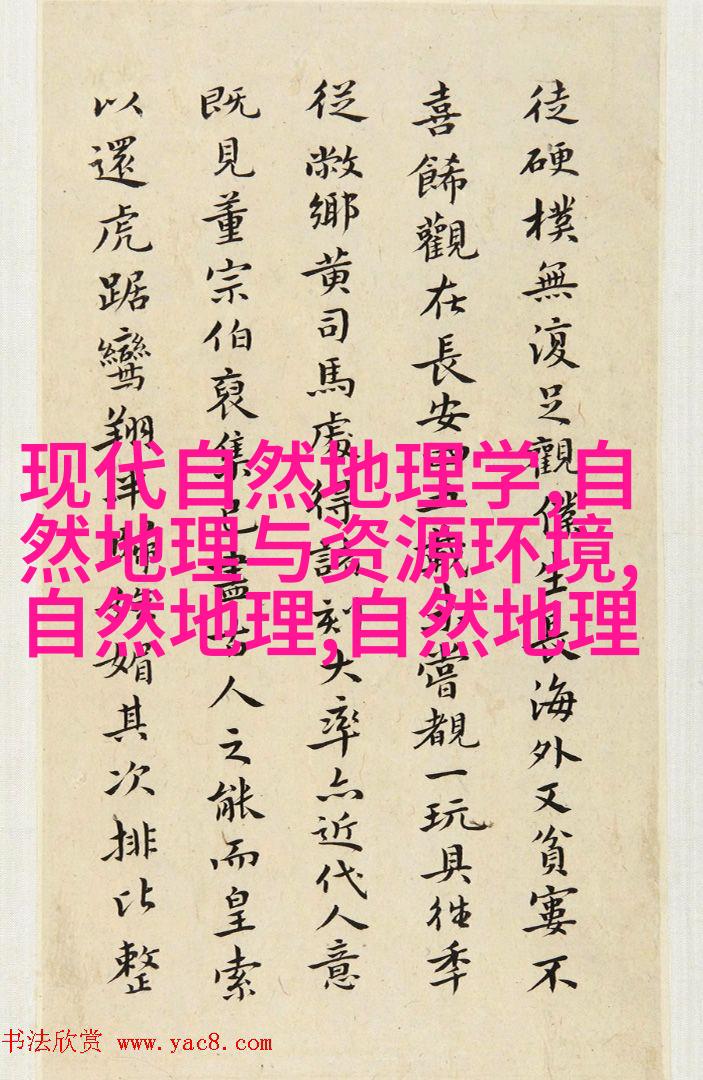 徒硬樸無復足觀僕生長海外又貧窶不
喜餙觀在長安嘗覩一玩具往季
從敝鄉黄司馬處得該刻大率亦近代人意
既見董宗伯裒集已盡古人之能而皇索
以還虎踞鸞翔媚其次排比整
现代自然地理学,自
然地理与资源环境,
自然地理,自然地理
书法欣赏 www.yac8.com